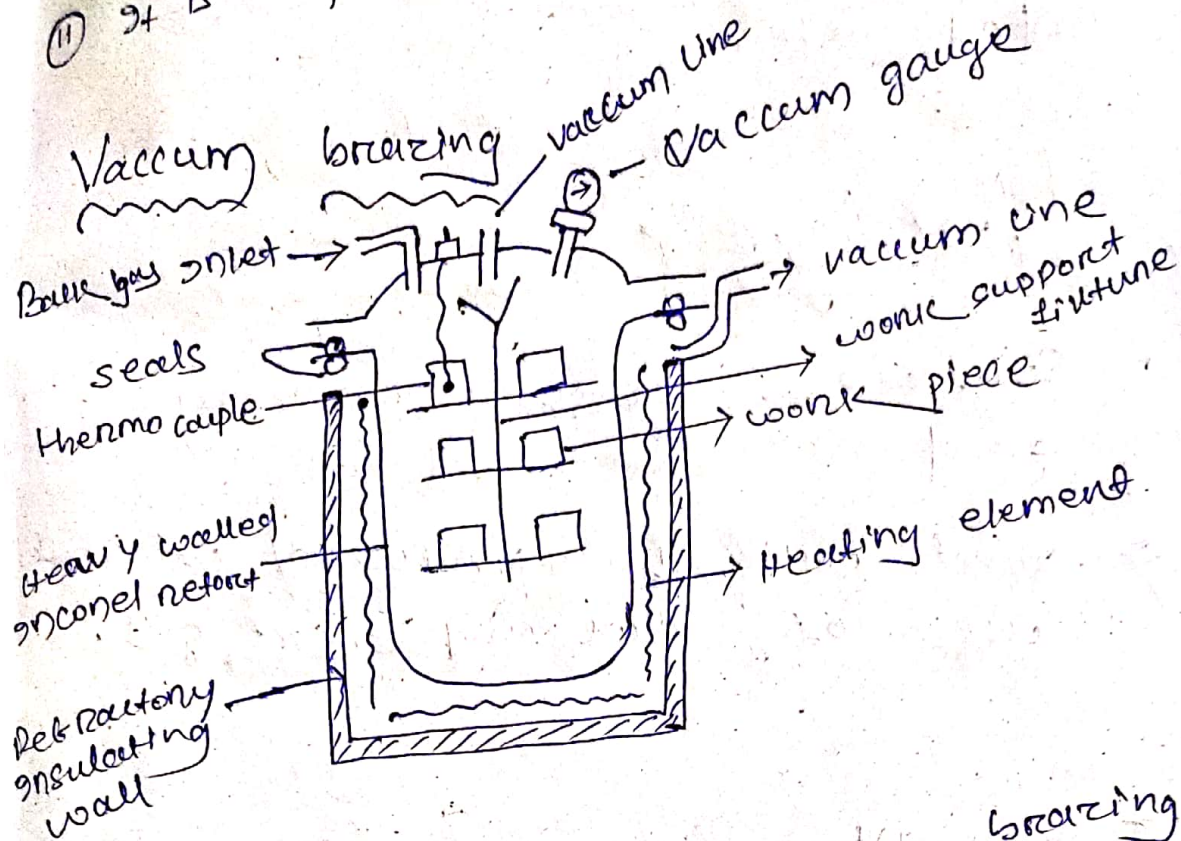 (11) It
Vaccum brazing
vaccum line
Vaccum gauge
Back gas Inlet
vaccum line
work support
fixture
seals
thermo couple
work piece
Heavy walled
Inconel retort
Heating element.
Refractory
Insulating
wall
brazing